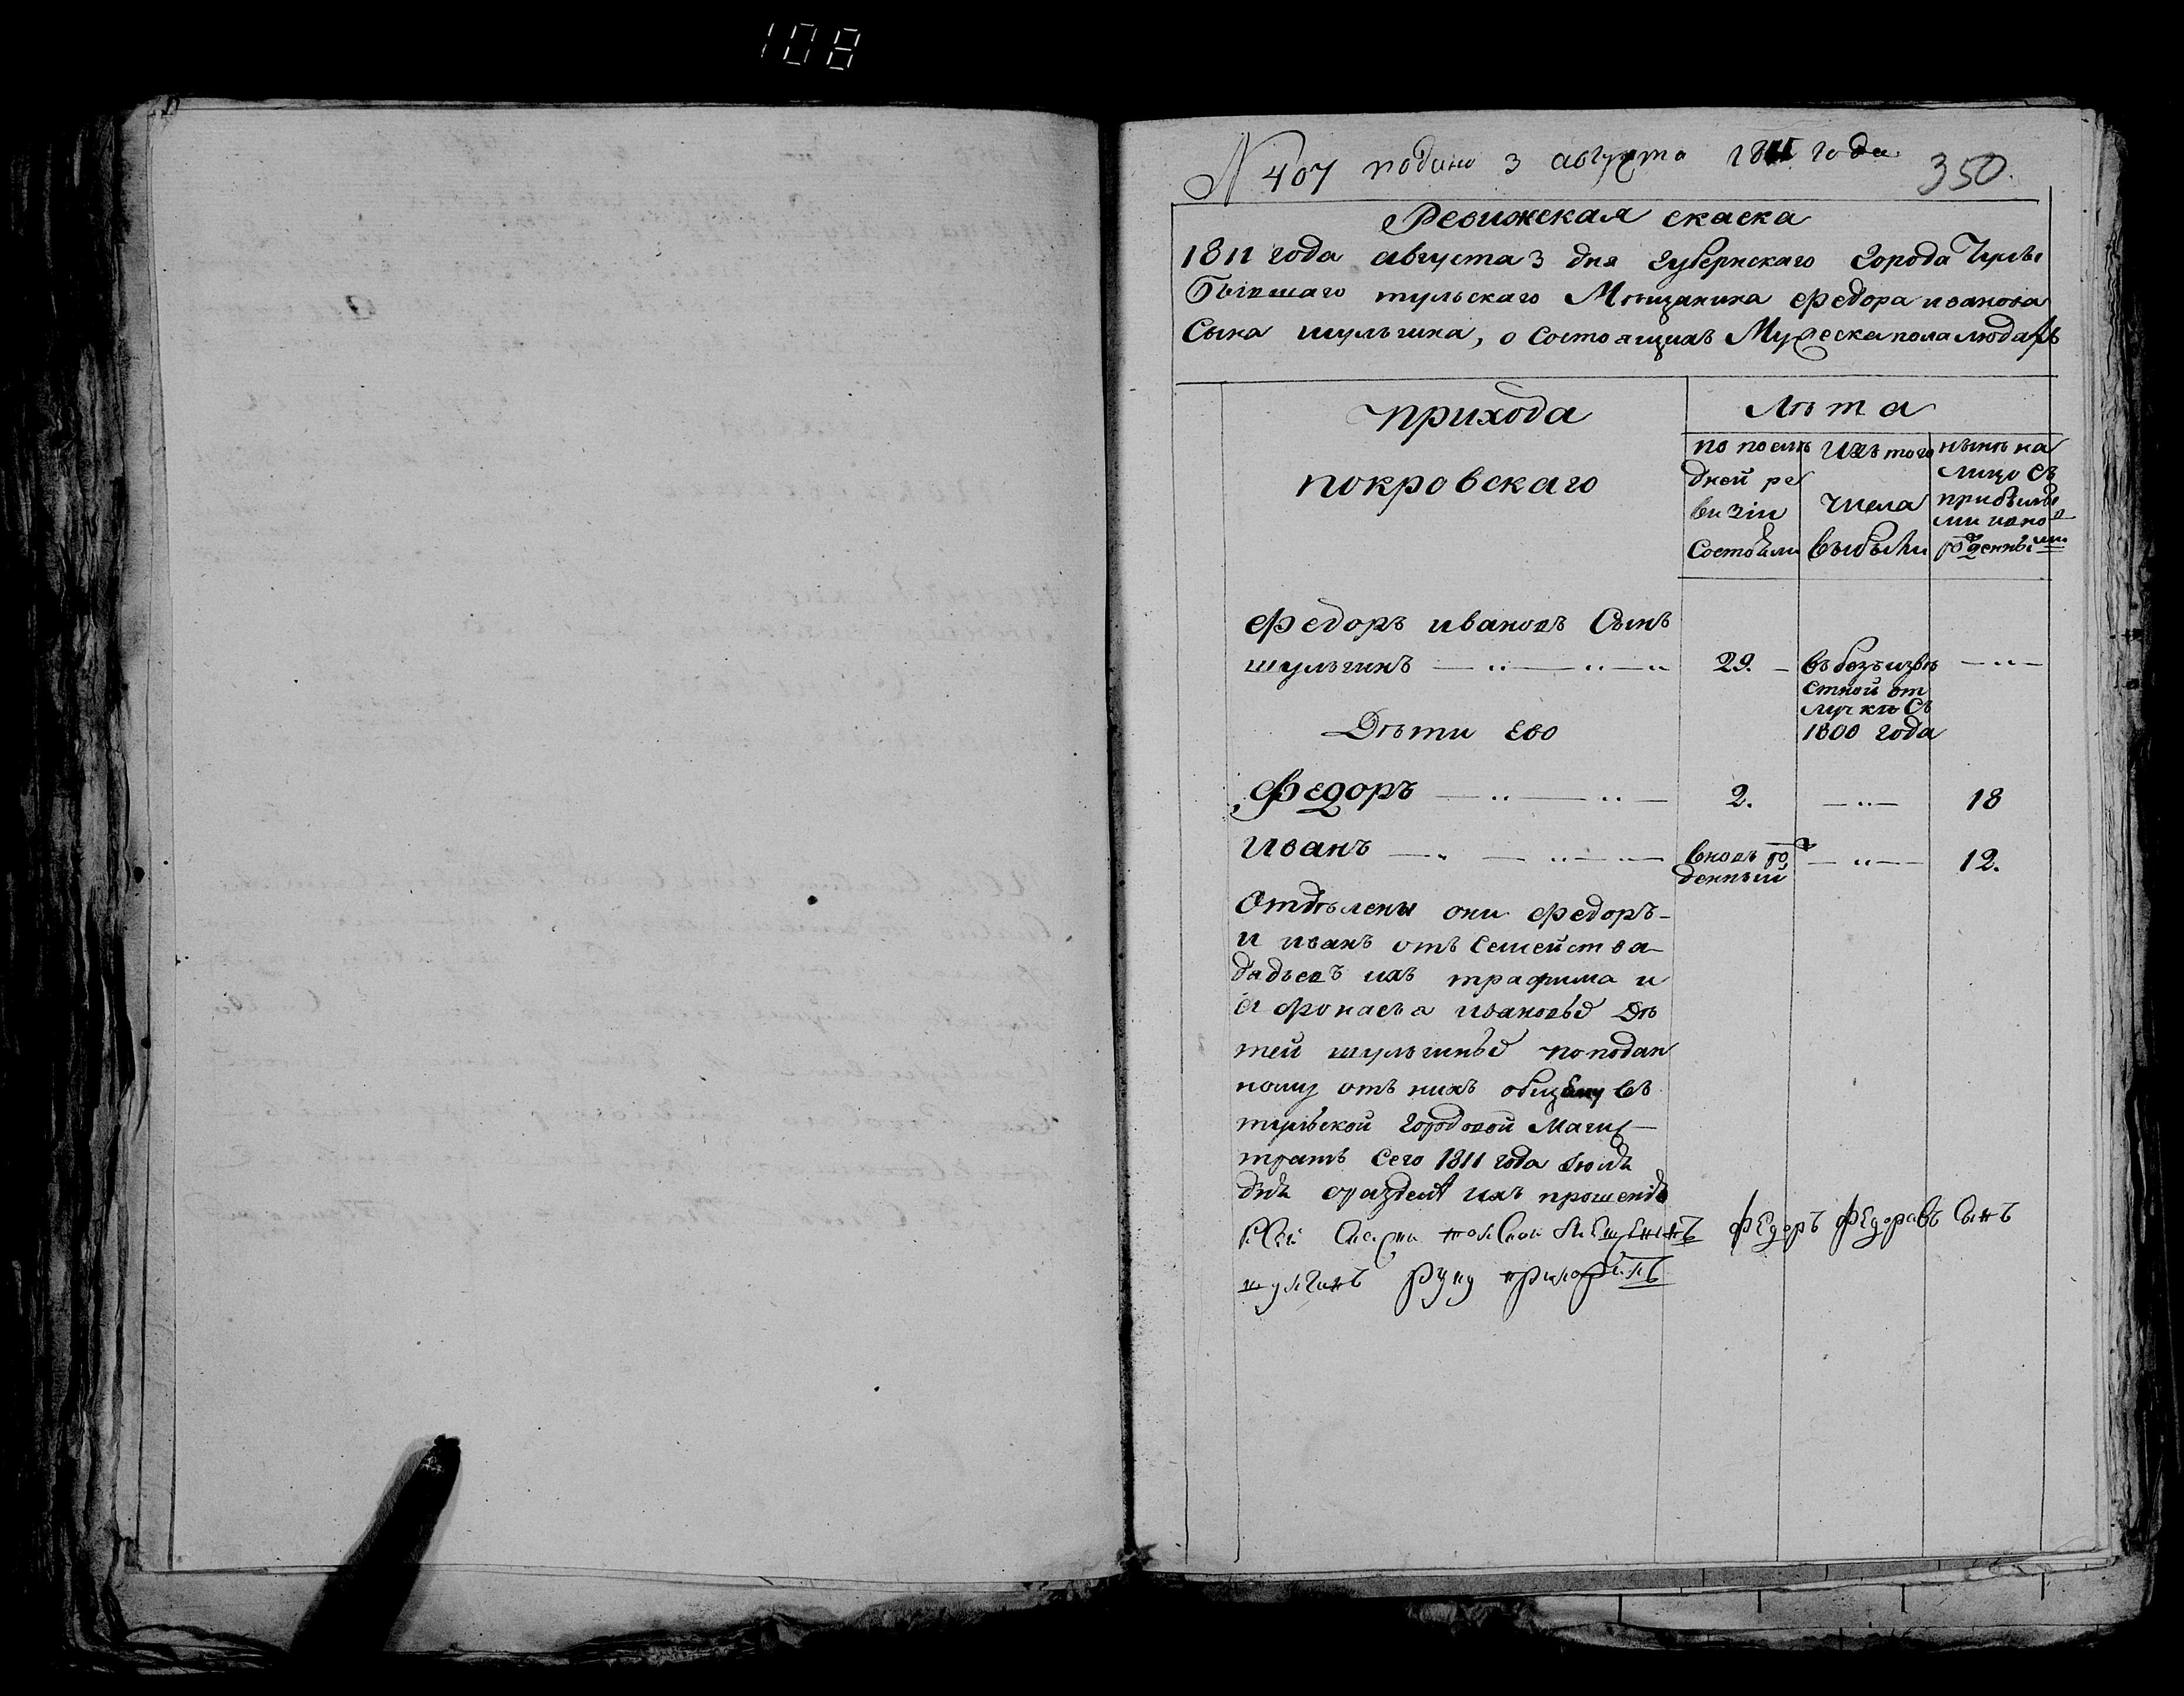 108
N 407 подано 3 августа 1811 года
350.
Ревижская скаска
1811 года августа 3 дня Губернскаго города Тулы
бывшаго тульскаго Мѣщанина Федора иванова
Сына шульгина, о состоящихъ Мужеска пола людяхъ
прихода
покровскаго
Лѣта
по послѣ
дней ре
визіи
Состояли
Изъ того
числа
выбыли
нынѣ на
лицо съ
прибылы
ми и ново
рожденными
Федоръ ивановъ Сынъ
шульгинъ — „ — „ — „ 29. — въ безъизвѣ — „ —
стной от
лучки съ
1800 года
Дѣти Ево
Федоръ — „ — „ — 2. — „ — 18
Иванъ — „ — „ — „ — вновь рож — „ — 12.
денный
Отдѣлены они Федоръ
и иванъ отъ Семейства
дядьевъ ихъ трафима и
Афонасья ивановыхъ дѣ
тей шульгиныхъ по подан
ному отъ нихъ общему въ
тульской Городовой Магис
тратъ сего 1811 года июля
дня о раздели ихъ прошенію
Къ сей скаски тольской мещенинъ федоръ федоравъ Сынъ
шулгинъ руку приложилъ